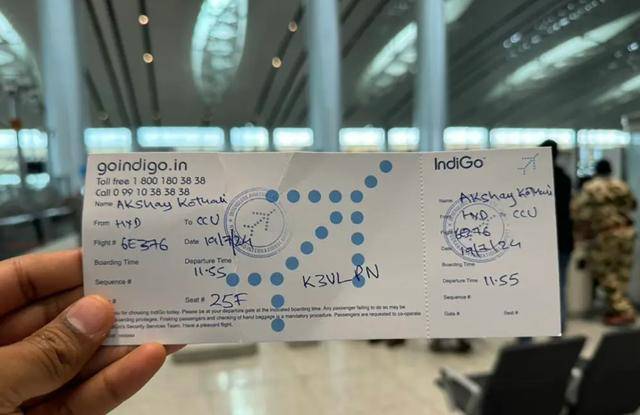 goindigo.in
Toll free 1 800 180 38 38
Call 0 99 10 38 38 38
Name AKshay Kothari
From HYD To CCU
Flight # 6E376 Date 19/7/24
Boarding Time Departure Time
11:55
Sequence #
# Seat # 25F
K3VLPN
for choosing IndiGo today. Please be at your departure gate at the indicated boarding time. Any passenger failing to do so may be
boarding privileges. Frisking passengers and checking of hand baggage is a mandatory procedure. Passengers are requested to co-operate
IndiGo's Security Services Team. Have a pleasant flight.
IndiGo
Name AKshay Kothari
From HYD CCU
6E376
19/7/24
Boarding Time
Departure Time 11:55
Sequence #
Gate # Seat #